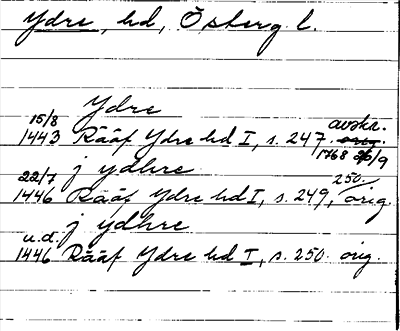 Ydre, hd, Östergötl.
Ydre
15/8 avskr.
1443 Rääf Ydre hd I, s. 247. orig.
1768 26/9
j ydhre
22/7 250.
1446 Rääf Ydre hd I, s. 249, orig.
j ydhre
u.d.
1446 Rääf Ydre hd I, s. 250. orig.